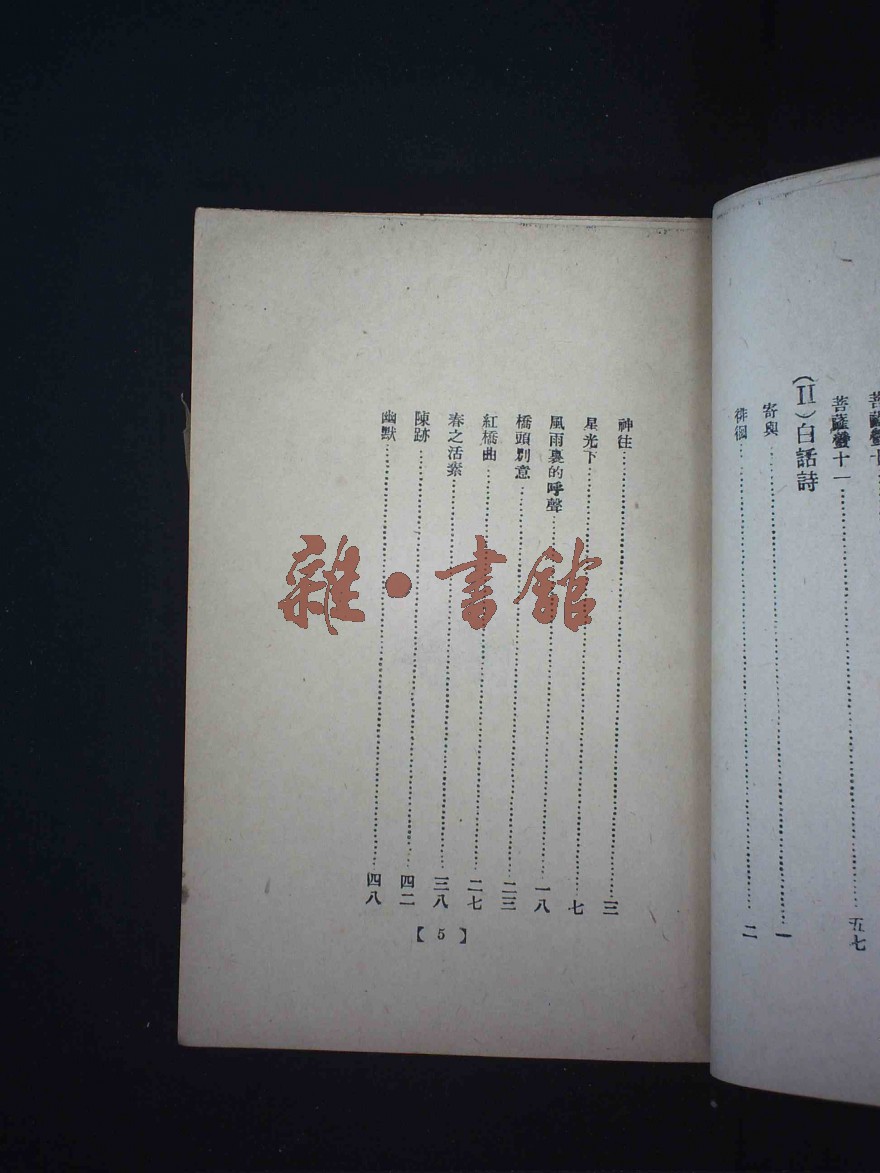 菩薩蠻十
菩薩蠻十一……五七
(II)白話詩
寄與……一
徘徊……二
神往……三
星光下……七
風雨裏的呼聲……一八
橋頭別意……二三
紅橋曲……二七
春之活素……三八
陳跡……四二
幽默……四八
【5】
雜·書館